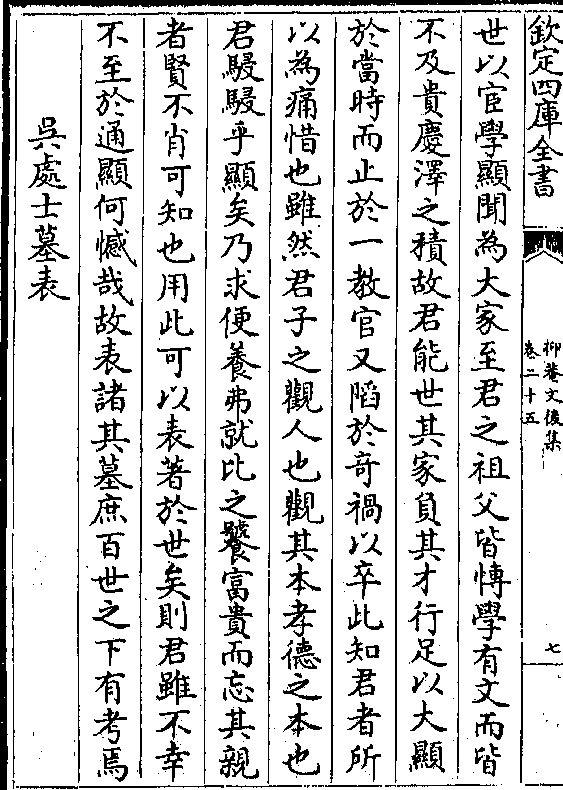 欽定四庫全書
抑菴文後集
卷二十五
七
世以宦學顯聞為大家至君之祖父皆博學有文而皆
不及貴慶澤之積故君能世其家負其才行足以大顯
於當時而止於一教官又陷於奇禍以卒此知君者所
以為痛惜也雖然君子之觀人也觀其本孝德之本也
君駸駸乎顯矣乃求便養弗就比之饕富貴而忘其親
者賢不肖可知也用此可以表著於世矣則君雖不幸
不至於通顯何憾哉故表諸其墓庶百世之下有考焉
吳處士墓表